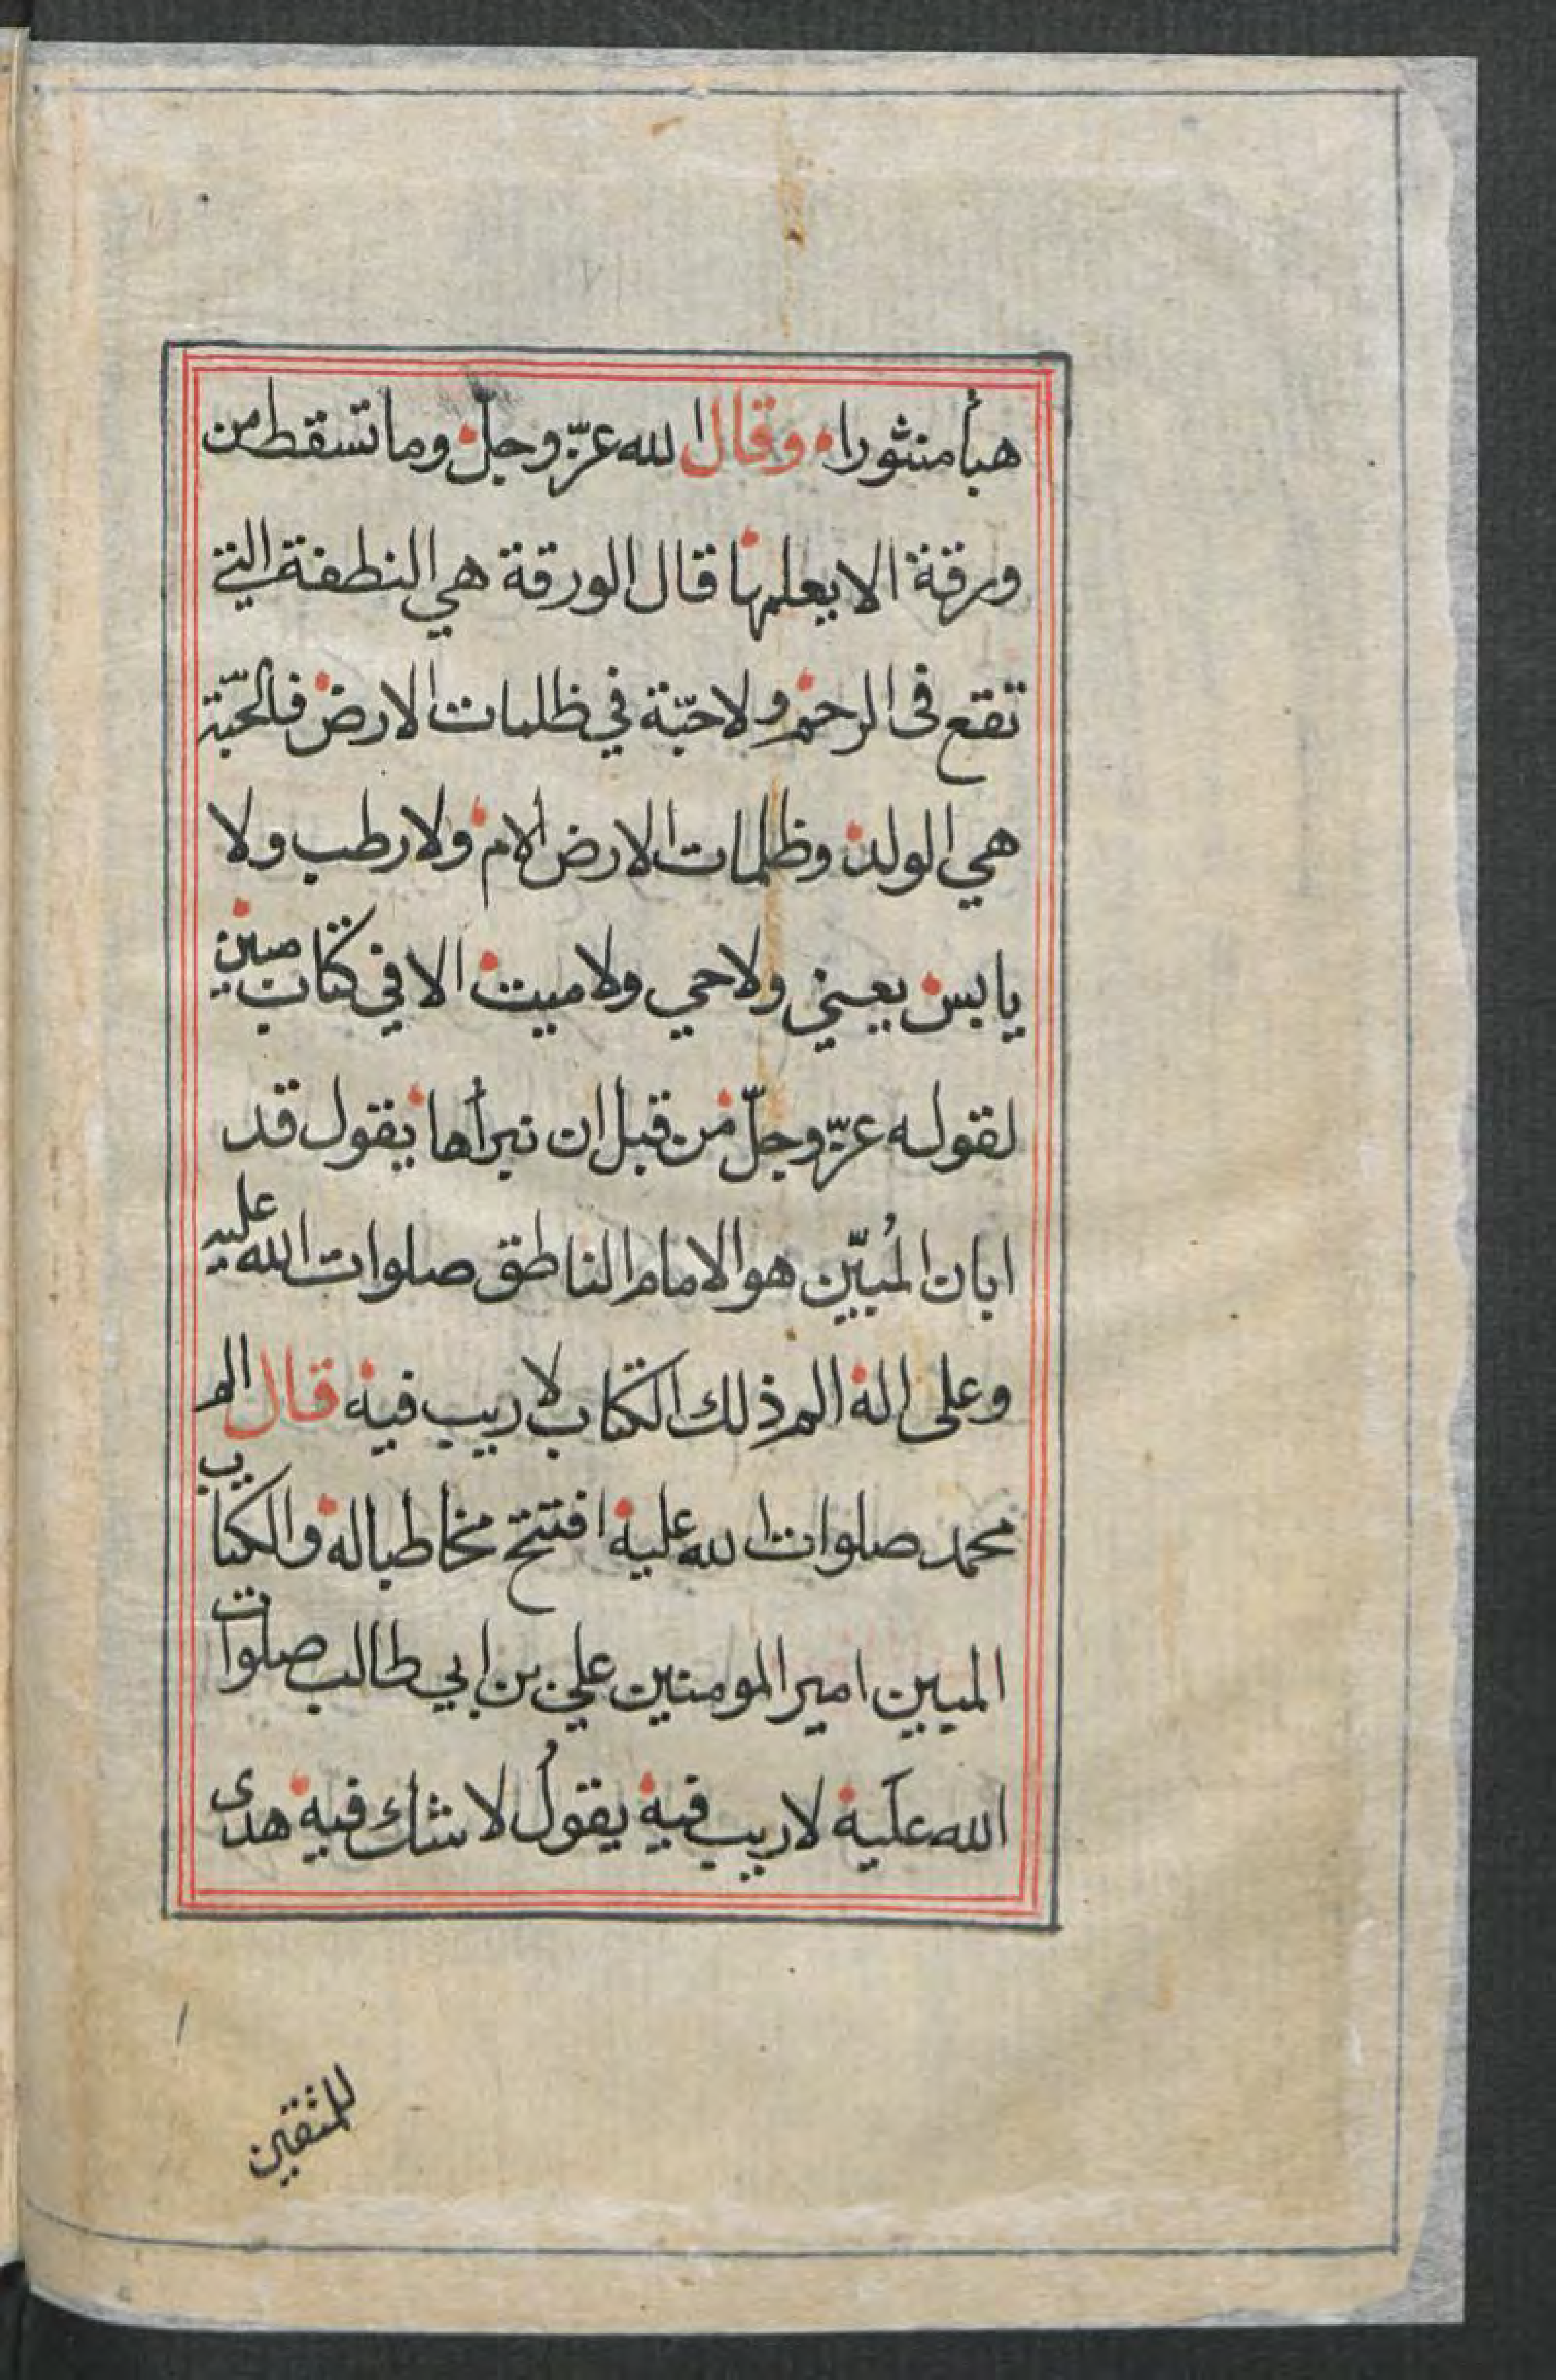 هبأ منثورا وقال الله عزّ وجلّ وما تسقط من
ورقة الا يعلمها قال الورقة هي النطفة التي
تقع في الرحم ولا حبّة في ظلمات الارض فالحبّة
هي الولد وظلمات الارض الام ولا رطب ولا
يابس يعني ولا حي ولا ميت الا في كتاب مبين
لقوله عزّ وجلّ من قبل ان نبرأها يقول قد
ابان المُبيّن هو الامام الناطق صلوات الله عليه
وعلى اله الم ذلك الكتاب لا ريب فيه قال الم
محمد صلوات الله عليه افتتح مخاطباله والكتاب
المبين امير المومنين علي بن ابي طالب صلوات
الله عليه لا ريب فيه يقول لا شك فيه هدى
للمتقين